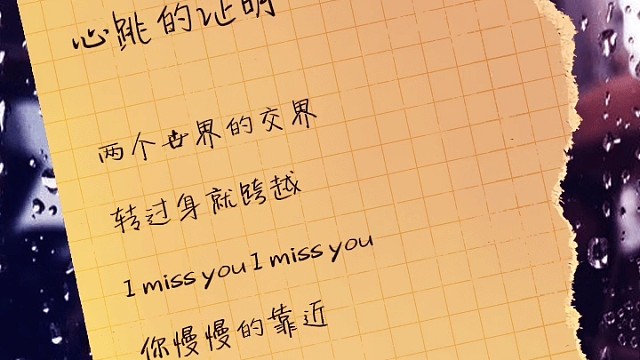 心跳的证明
两个世界的交界
转过身就跨越
I miss you I miss you
你慢慢的靠近